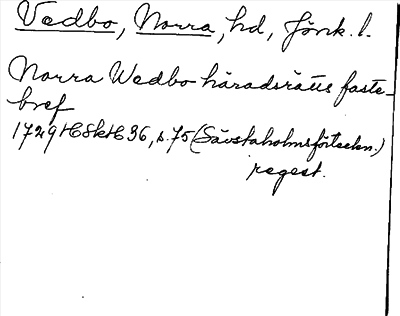 Vedbo, Norra, hd, Jönk. l.
Norra Wedbo häradsrätts faste-
bref
1729 H 36, s. 75 (Sävstaholmsförteckn.)
regest.